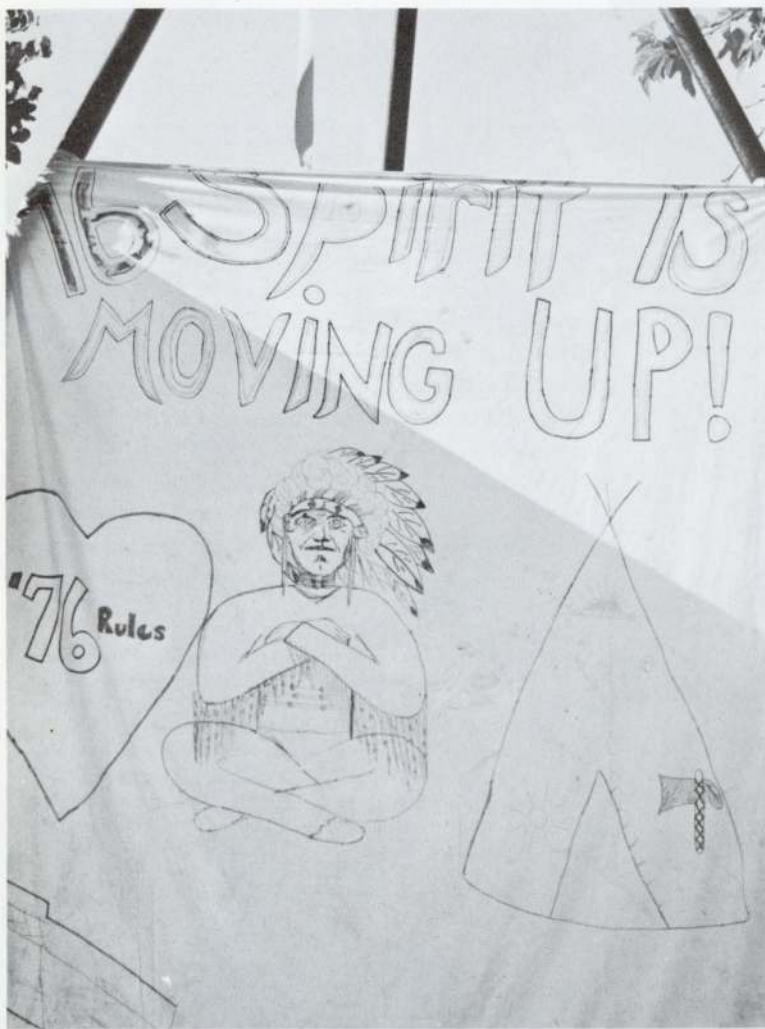 76 Spirit is
MOViNG UP!
'76 Rules